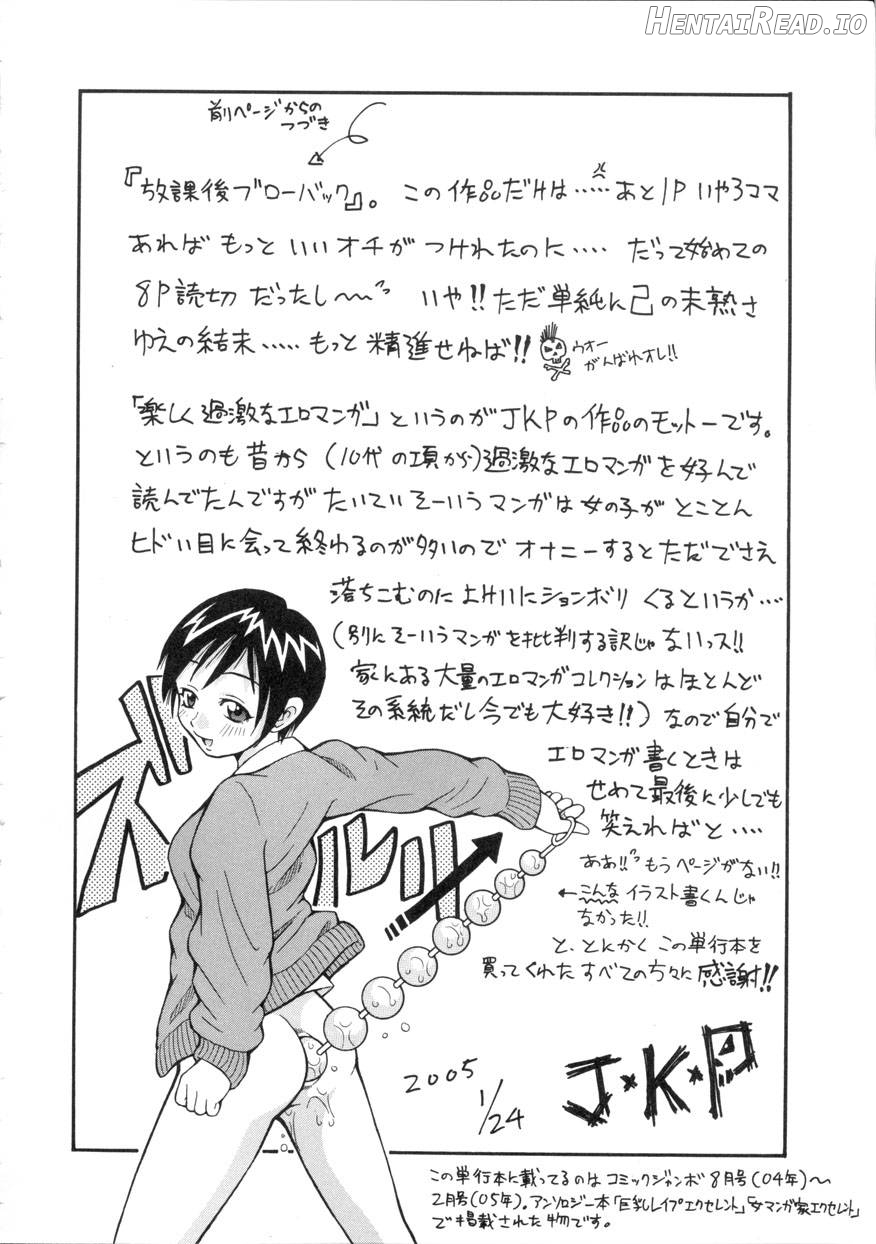 HENTAIREAD.IO
前ページからの
つづき
『放課後ブローバック』。この作品だけは……あと1P いやろコマ
あればもっといいオチがつけれたのに…… だって始めての
8P読切だったし〜〜 いや!!ただ単純に己の未熟さ
ゆえの結末……もっと精進せねば!!
ウオー
がんばれオレ!!
「楽しく過激なエロマンガ」というのがJKPの作品のモットーです。
というのも昔から(10代の項から)過激なエロマンガを好んで
読んでたんですがたいていそーいうマンガは女の子がとことん
ヒドい目に会って終わるのが多いのでオナニーするとただでさえ
落ちこむのによけいにションボリくるというか…
(別にそーいうマンガを批判する訳じゃないっス!!
家にある大量のエロマンガコレクションはほとんど
その系統だし今でも大好き!!)なので自分で
エロマンガ書くときは
せめて最後に少しでも
笑えればと……
ああ!!もうページがない!!
←こんなイラスト書くんじゃ
なかった!!
と、とにかくこの単行本を
買ってくれたすべての方々に感謝!!
ズルルリ
2005
1/24
J・K・P
この単行本に載ってるのはコミックジャンボ8月号(04年)〜
2月号(05年)。アンソロジー本「巨乳レイプエクセレント」「女マンガ家エクセレント」
で掲載された物です。